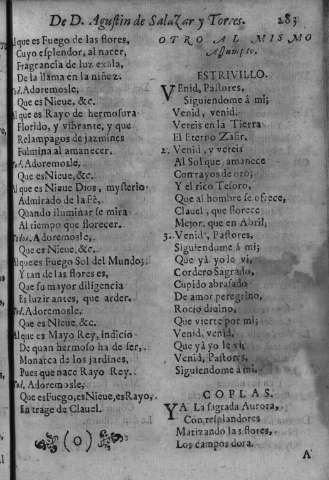 De D. Agustin de Salazar y Torres. 283
al que es Fuego de las flores,
Cuyo esplendor, al nacer,
Fragrancia de luz exala,
De la llama en la niñez.
Tod. Adoremosle,
Que es Nieue, &c.
al que es Rayo de hermosura
Florido, y vibrante, y que
Relampagos de jazmines
Fulmina al amanecer.
Tod. Adoremosle,
Que es Nieue, &c.
Al que es Nieue Dios, mysterio
Admirado de la Fè,
Quando iluminar se mira
Al tiempo que florecer.
Todos. Adoremosle,
Que es Nieue, &c.
Al que es Fuego Sol del Mundo;
Y tan de las flores es,
Que su mayor diligencia
Es luzir antes, que arder.
Tod. Adoremosle,
Que es Nieue, &c.
Al que es Mayo Rey, indicio
De quan hermoso ha de ser,
Monarca de los jardines,
Pues que nace Rayo Rey.
Tod. Adoremosle,
Que es Fuego, es Nieue, es Rayo,
En trage de Clauel.
(o)
OTRO AL MISMO
Assumpto.
ESTRIVILLO.
Venid, Pastores,
Siguiendome à mi;
Venid, venid,
Vereis en la Tierra
El Eterno Zafir.
2. Venid, y vereis
Al Sol que amanece
Con rayos de oro;
Y el rico Tesoro,
Que al hombre se ofrece,
Clauel, que florece
Mejor, que en Abril,
3. Venid, Pastores,
Siguiendome à mi;
Que yà yo le vi,
Cordero Sagrado,
Cupido abrasado
De amor peregrino,
Rocio diuino,
Que vierte por mi;
Venid, venid,
Que yà yo le vi,
Venid, Pastores,
Siguiendome à mi.
COPLAS.
YA la sagrada Aurora,
Con resplandores
Matizando las flores,
Los campos dora.
A